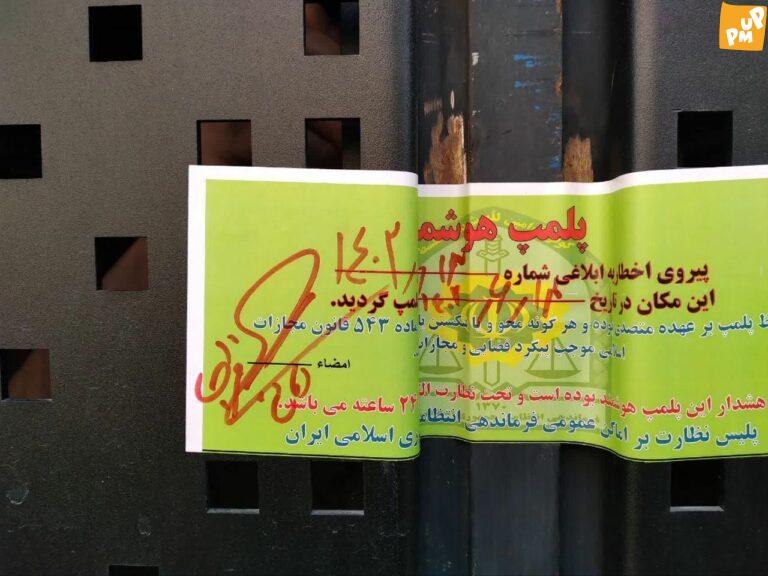 UP
PM
پلمپ هوشم
پیروی اخطاریه ابلاغی شماره
این مکان در تاریخ لمپ گردید.
ظ پلمپ بر عهده متصدی بوده و هر گونه محو و یا شکستن ماده ۵۴۳ قانون مجازات
اسلامی موجب پیگرد قضایی و مجازات
امضاء
هشدار این پلمپ هوشمند بوده است و تحت نظارت ۲۴ ساعته می باشد.
پلیس نظارت بر اماکن عمومی فرماندهی انتظامی ری اسلامی ایران
۱۳۷۰